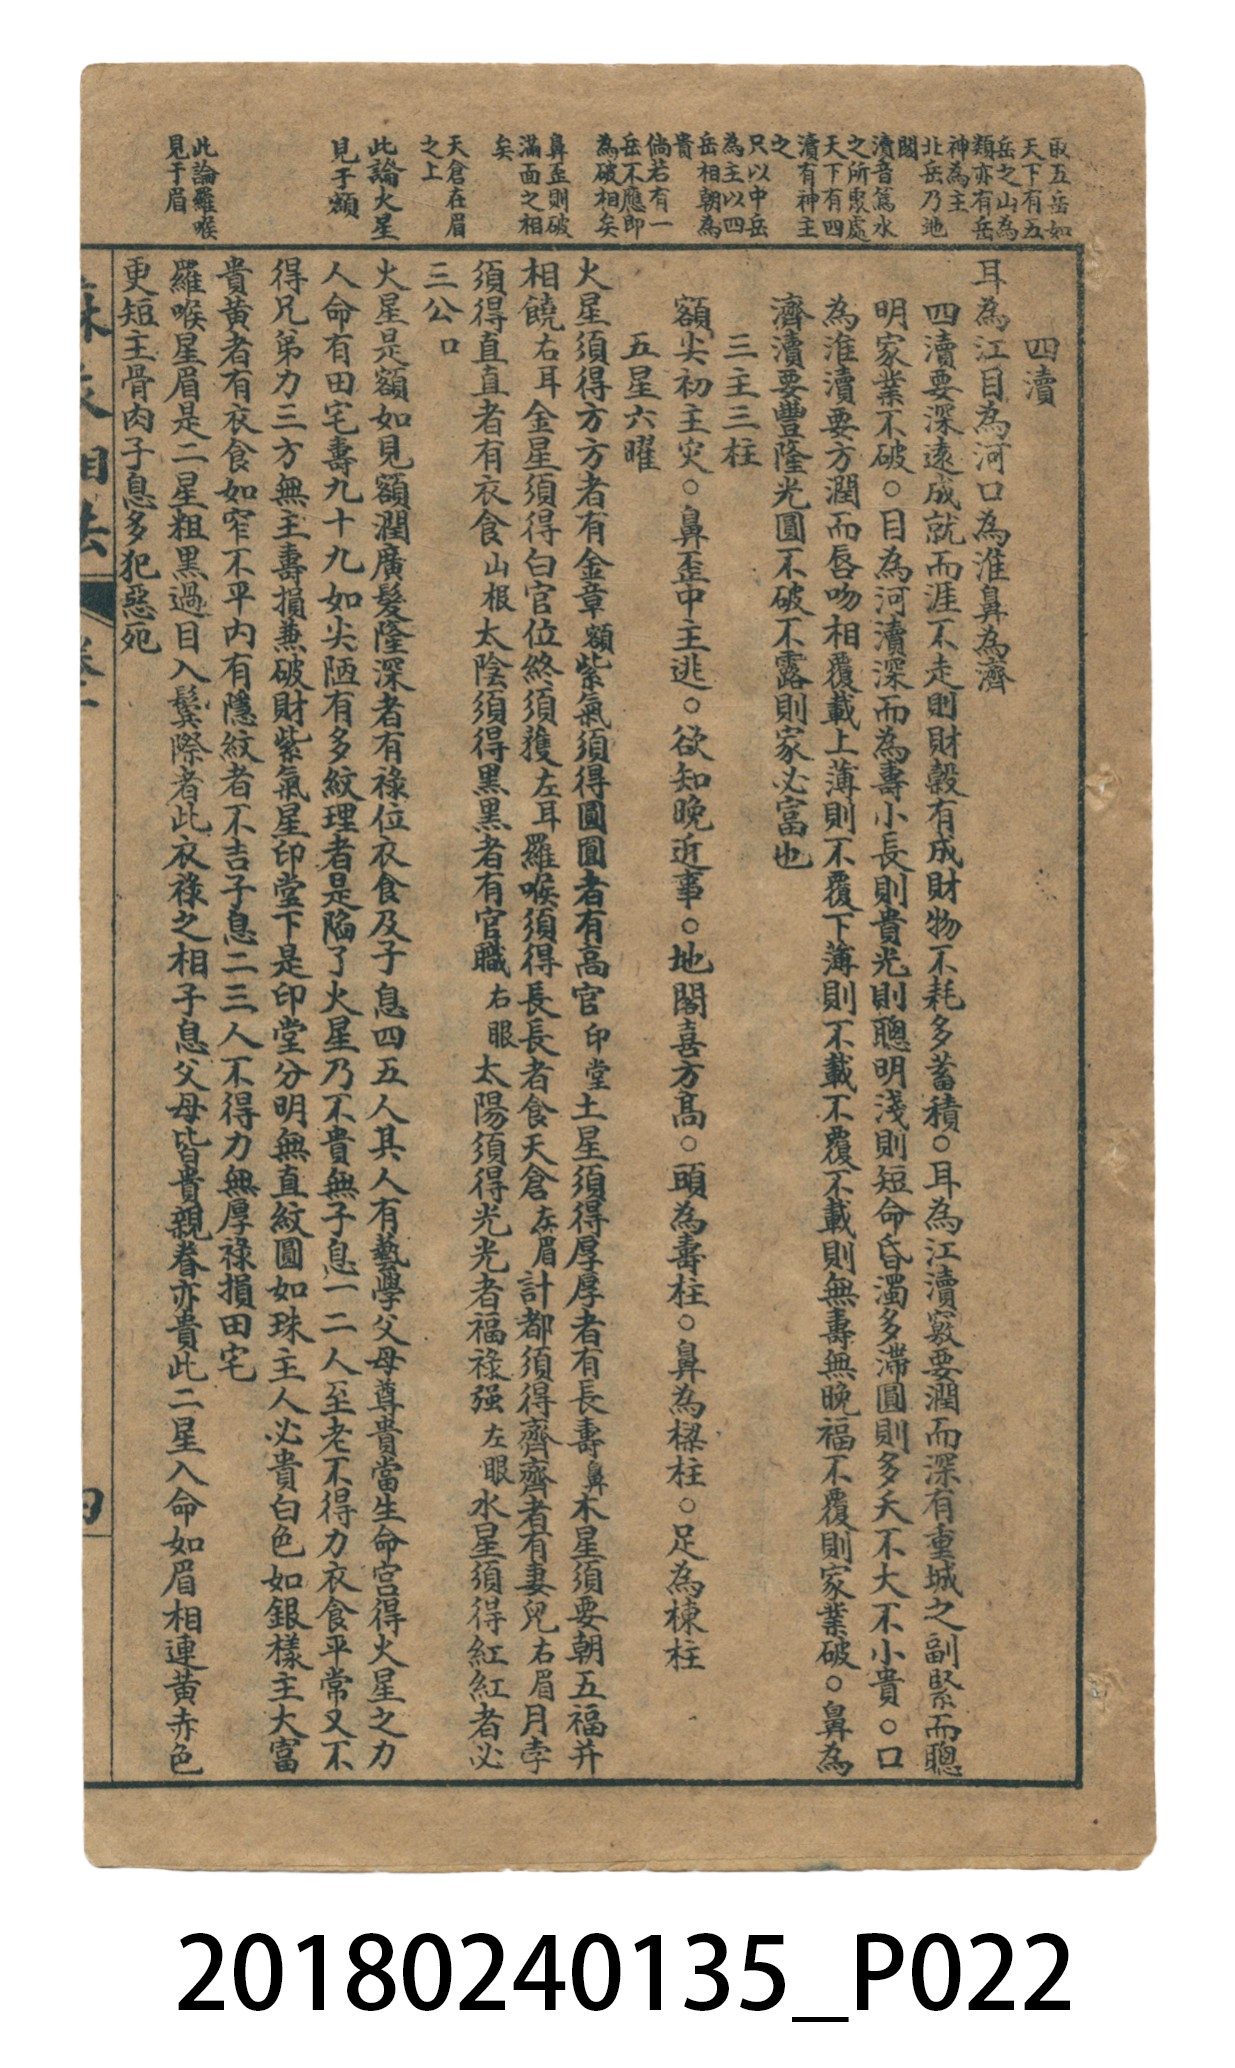 取五岳如
天下有五
岳之山為
類亦有岳
神為主
北岳乃地
閣
瀆音篤水
之所聚處
天下有四
瀆有神主
之
只以中岳
為主以四
岳相朝為
貴
倘若有一
岳不應即
為破相矣
鼻歪則破
滿面之相
矣
天倉在眉
之上
此論火星
見于額
此論羅㬋
見于眉
四瀆
耳為江目為河口為淮鼻為濟
四瀆要深遠成就而涯不走則財穀有成財物不耗多蓄積○耳為江瀆竅要濶而深有重城之副緊而聰
明家業不破○目為河瀆深而為壽小長則貴光則聰明淺則短命昏濁多滯圓則多夭不大不小貴○口
為淮瀆要方濶而唇吻相覆載上薄則不覆下薄則不載不覆不載則無壽無晚福不覆則家業破○鼻為
濟瀆要豐隆光圓不破不露則家必富也
三主三柱
額尖初主灾○鼻歪中主逃○欲知晚近事○地閣喜方高○頭為壽柱○鼻為樑柱○足為棟柱
五星六曜
火星須得方方者有金章額紫氣須得圓圓者有高官印堂土星須得厚厚者有長壽鼻木星須要朝五福并
相饒右耳金星須得白官位終須獲左耳羅㬋須得長長者食天倉左眉計都須得齊齊者有妻兒右眉月孛
須得直直者有衣食山根太陰須得黑黑者有官職右眼太陽須得光光者福祿强左眼水星須得紅紅者必
三公口
火星是額如見額濶廣髮隆深者有祿位衣食及子息四五人其人有藝學父母尊貴當生命宮得火星之力
人命有田宅壽九十九如尖陋有多紋理者是陷了火星乃不貴無子息一二人至老不得力衣食平常又不
得兄弟力三方無主壽損兼破財紫氣星印堂下是印堂分明無直紋圓如珠主人必貴白色如銀樣主大富
貴黃者有衣食如窄不平內有隱紋者不吉子息二三人不得力無厚祿損田宅
羅㬋星眉是二星粗黑過目入鬓際者此衣祿之相子息父母皆貴親眷亦貴此二星入命如眉相連黃赤色
更短主骨肉子息多犯惡死
麻衣相法
20180240135_P022